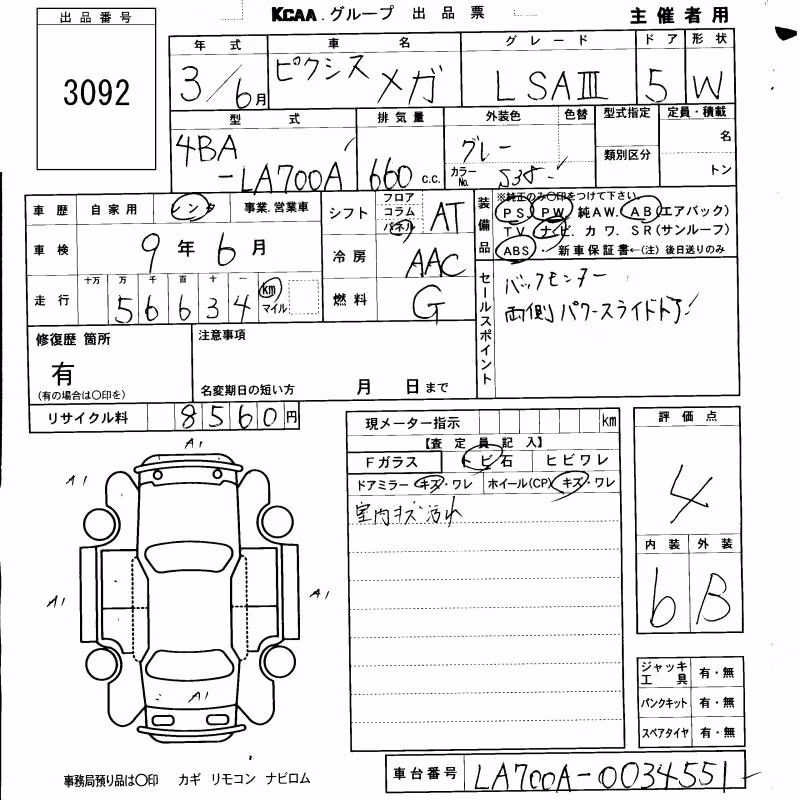 出品番号
3092
KCAA グループ 出品票
主催者用
年式 車名 グレード ドア 形状
3/6月 ピクシス メガ L SAⅢ 5 W
型式 排気量 外装色 色替 型式指定 定員・積載
4BA
-LA700A 660 c.c. グレー カラーNo. S38 類別区分 名
トン
車歴 自家用 レンタ 事業.営業車
車検 9年 6月
走行 十万 万 千 百 十 一
5 6 6 3 4 km マイル
シフト フロア コラム パネル AT
冷房 AAC
燃料 G
装備品
※純正のみ〇印をつけて下さい。
PS. PW 純AW. AB(エアバック)
TV. ナビ. カワ. SR(サンルーフ)
ABS ・ 新車保証書←(注) 後日送りのみ
セールスポイント
バックモニター
両側パワースライドドア
修復歴 箇所
有
(有の場合は〇印を)
注意事項
名変期日の短い方 月 日まで
リサイクル料 8560円
現メーター指示 km
【査定員記入】
Fガラス トビ石 ヒビワレ
ドアミラー キズ・ワレ ホイール(CP) キズ・ワレ
室内キズ汚れ
評価点
4
内装 外装
b B
A1
A1
A1
A1
A1
ジャッキ工具 有・無
パンクキット 有・無
スペアタイヤ 有・無
事務局預り品は〇印 カギ リモコン ナビロム
車台番号 LA700A-0034551